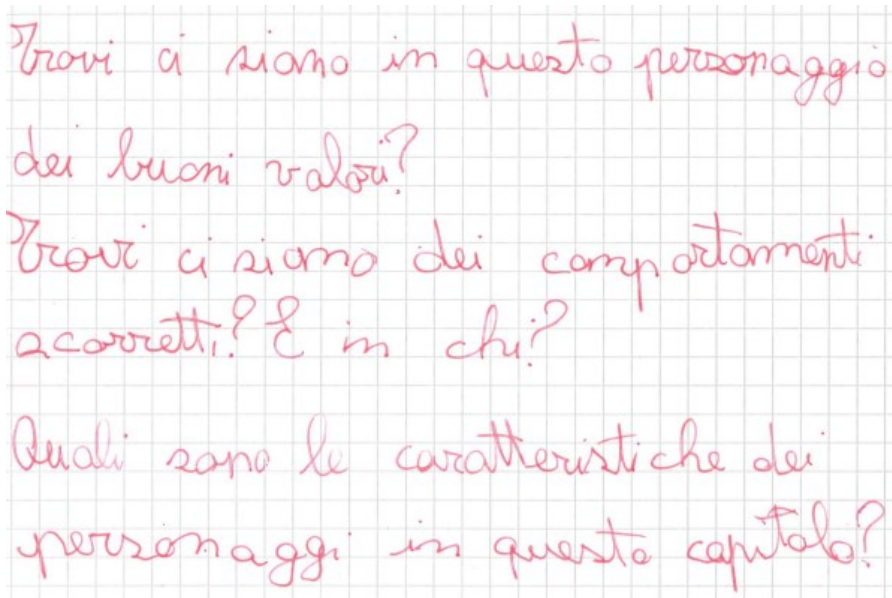 Trovi ci siano in questo personaggio
dei buoni valori?
Trovi ci siano dei comportamenti
scorretti? E in chi?
Quali sono le caratteristiche dei
personaggi in questo capitolo?